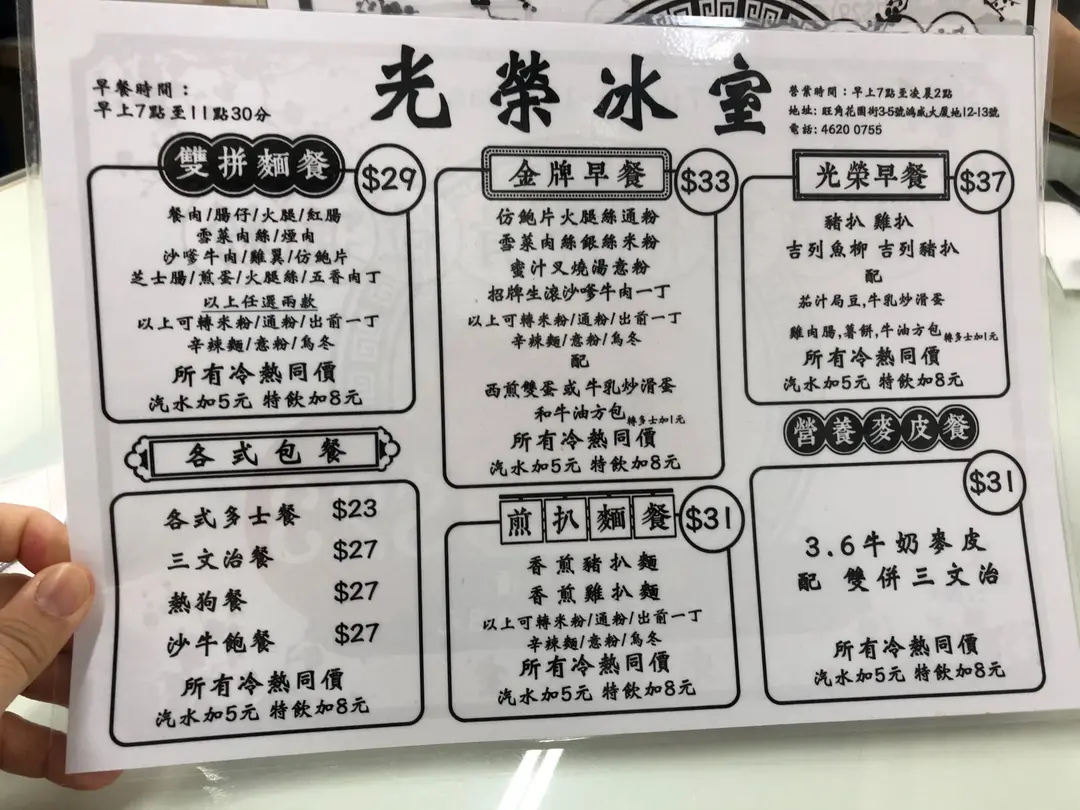 早餐時間：
早上7點至11點30分
光榮冰室
營業時間：早上7點至凌晨2點
地址：旺角花園街3-5號鴻威大廈地12-13號
電話：4620 0755
雙拼麵餐
$29
餐肉/腸仔/火腿/紅腸
雪菜肉絲/煙肉
沙嗲牛肉/雞翼/仿鮑片
芝士腸/煎蛋/火腿絲/五香肉丁
以上任選兩款
以上可轉米粉/通粉/出前一丁
辛辣麵/意粉/烏冬
所有冷熱同價
汽水加5元 特飲加8元
各式包餐
各式多士餐 $23
三文治餐 $27
熱狗餐 $27
沙牛飽餐 $27
所有冷熱同價
汽水加5元 特飲加8元
金牌早餐
$33
仿鮑片火腿絲通粉
雪菜肉絲銀絲米粉
蜜汁叉燒湯意粉
招牌生滾沙嗲牛肉一丁
以上可轉米粉/通粉/出前一丁
辛辣麵/意粉/烏冬
配
西煎雙蛋或牛乳炒滑蛋
和牛油方包轉多士加1元
所有冷熱同價
汽水加5元 特飲加8元
煎扒麵餐
$31
香煎豬扒麵
香煎雞扒麵
以上可轉米粉/通粉/出前一丁
辛辣麵/意粉/烏冬
所有冷熱同價
汽水加5元 特飲加8元
光榮早餐
$37
豬扒 雞扒
吉列魚柳 吉列豬扒
配
茄汁焗豆,牛乳炒滑蛋
雞肉腸,薯餅,牛油方包轉多士加1元
所有冷熱同價
汽水加5元 特飲加8元
營養麥皮餐
$31
3.6牛奶麥皮
配 雙併三文治
所有冷熱同價
汽水加5元 特飲加8元